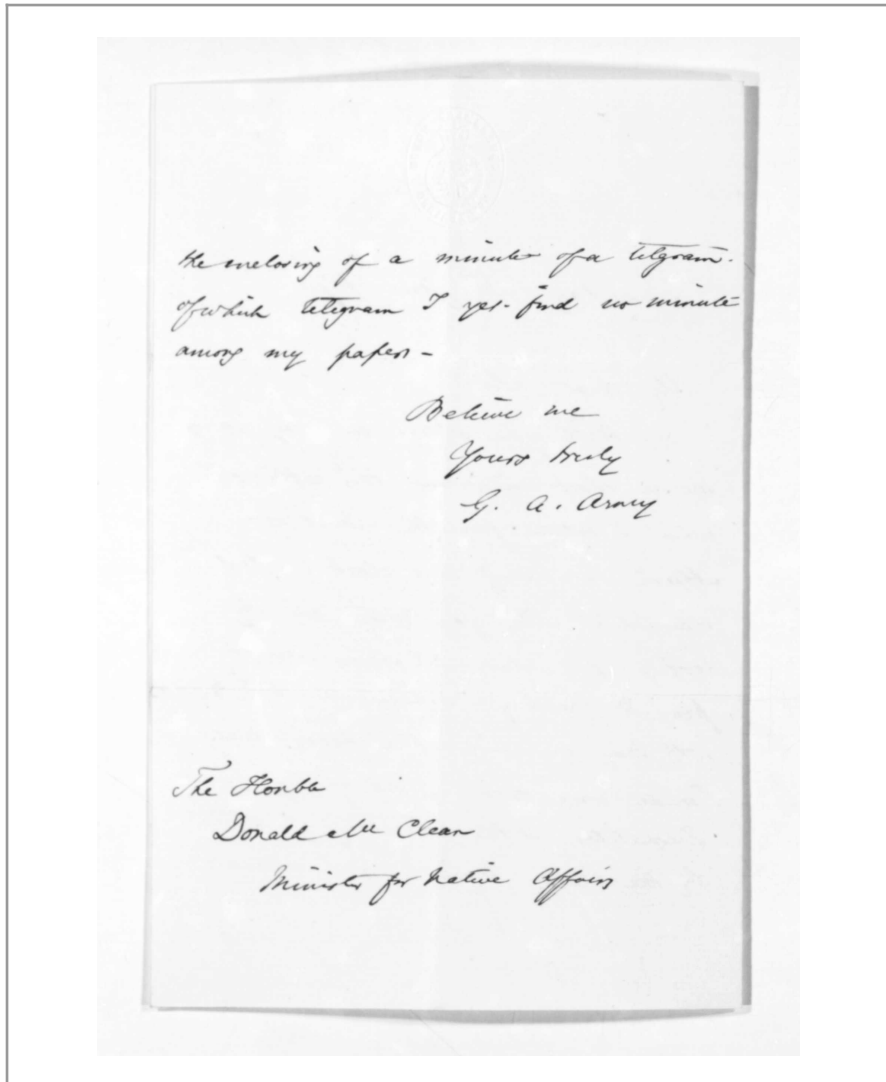 the enclosing of a minute of a telegram.
of which telegram I yet find no minute
among my papers -
Believe me
Yours truly
G. A. Arney
The Honble
Donald Mc Clean
Minister for Native Affairs